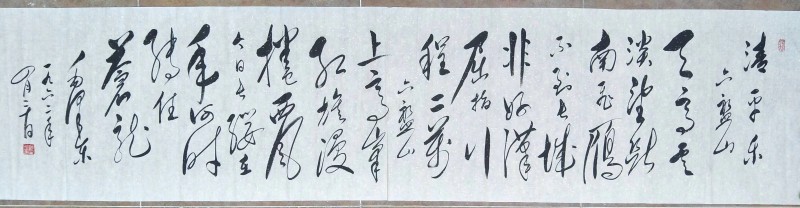 清平乐
六盘山
天高云
淡望断
南飞雁
不到长城
非好汉
屈指行
程二万
六盘山
上高峰
红旗漫
捲西风
今日长缨在
手何时
缚住
苍龙
毛泽东
一九六一年
九月二十日